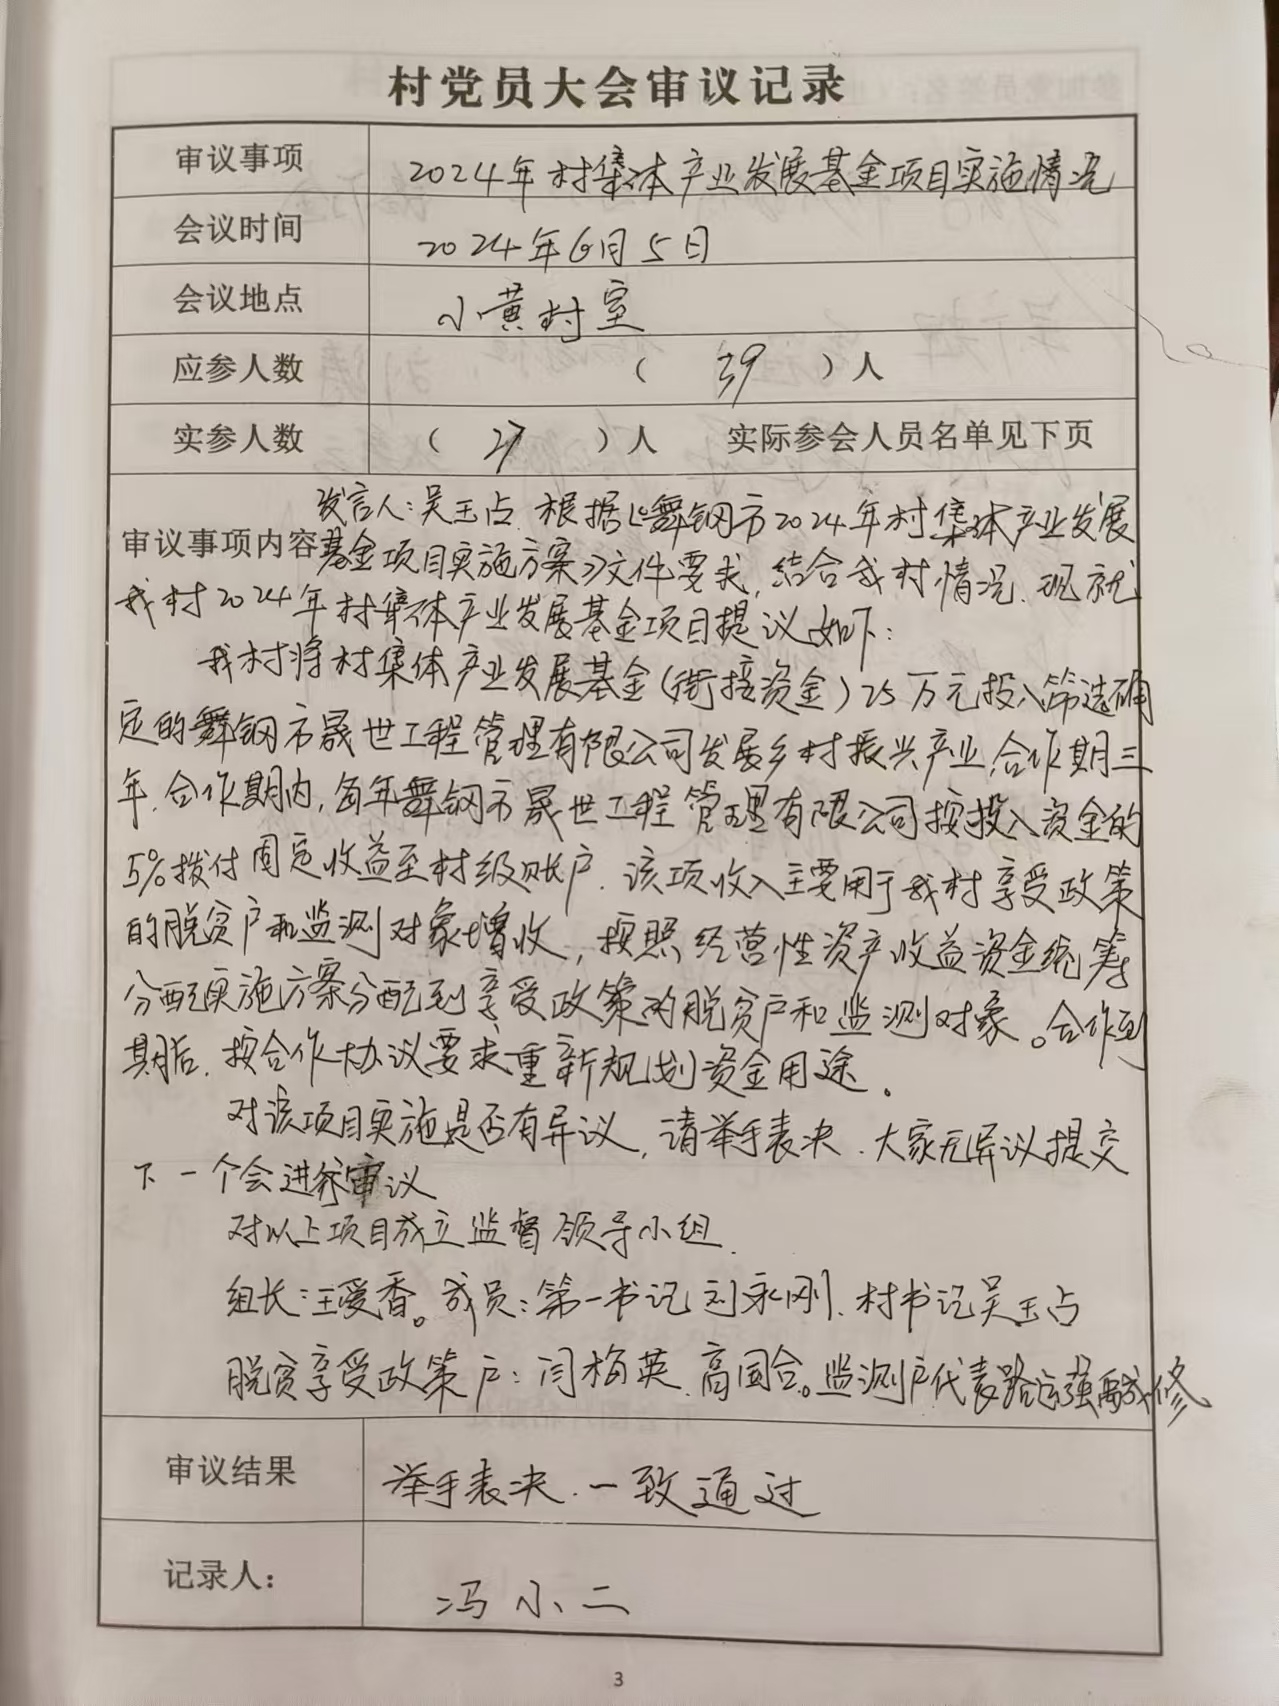 村党员大会审议记录
审议事项 2024年村集体产业发展基金项目实施情况
会议时间 2024年6月5日
会议地点 小黄村室
应参人数 （ 39 ）人
实参人数 （ 27 ）人 实际参会人员名单见下页
发言人:吴玉占.根据《舞钢市2024年村集体产业发展
审议事项内容 基金项目实施方案》文件要求,结合我村情况、现就
我村2024年村集体产业发展基金项目提议如下:
我村将村集体产业发展基金(衔接资金)25万元投入筛选确
定的舞钢市晟世工程管理有限公司发展乡村振兴产业,合作期三
年.合作期内,每年舞钢市晟世工程管理有限公司按投入资金的
5%拨付固定收益至村级账户.该项收入主要用于我村享受政策
的脱贫户和监测对象增收,按照经营性资产收益资金统筹
分配实施方案分配到享受政策的脱贫户和监测对象。合作到
期后.按合作协议要求重新规划资金用途。
对该项目实施是否有异议,请举手表决.大家无异议提交
下一个会进行审议
对以上项目成立监督领导小组.
组长:王爱香。成员:第一书记刘永刚、村书记吴玉占
脱贫享受政策户:闫梅英、高国合。监测户代表路运强 修
审议结果 举手表决.一致通过
记录人: 冯小二
3